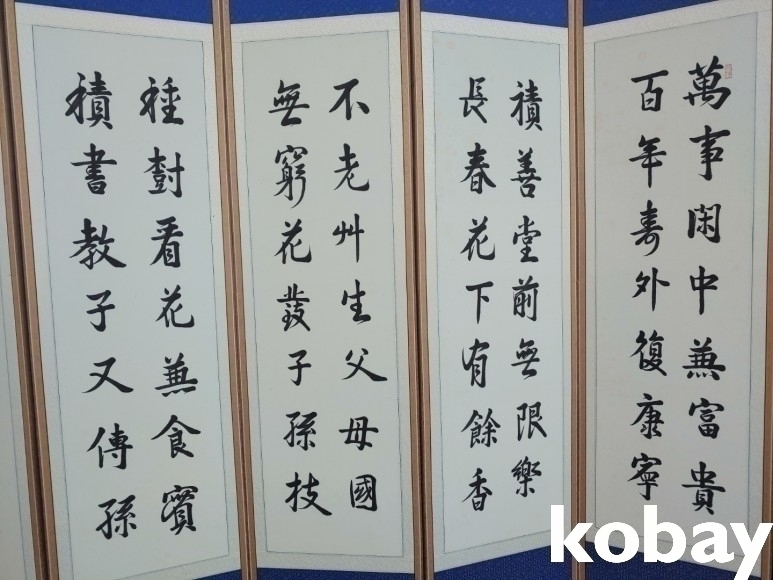 萬事閑中兼富貴
百年壽外復康寧
積善堂前無限樂
長春花下有餘香
不老艸生父母國
無窮花發子孫枝
種樹看花兼食實
積書敎子又傳孫
kobay